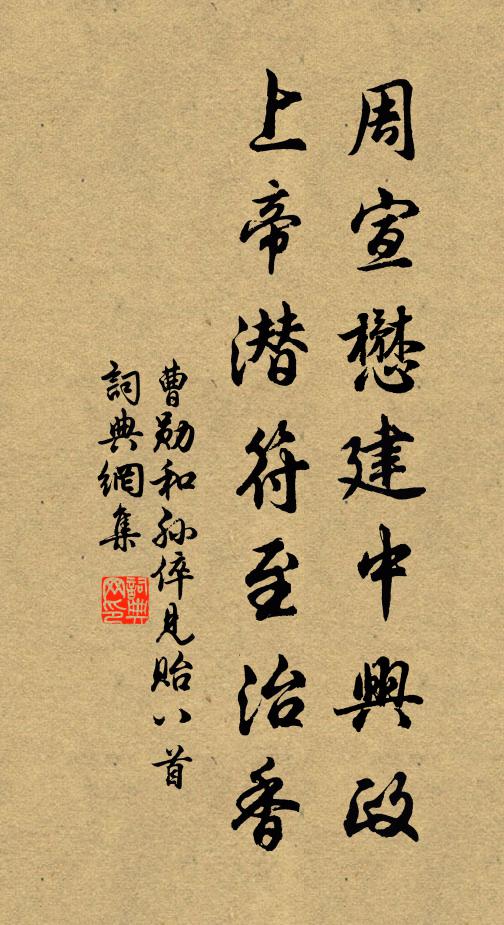 周宣懋建中興政
上帝潜符至治香
曹勛和孫倅見貽八首
詞典網集
詞典網印